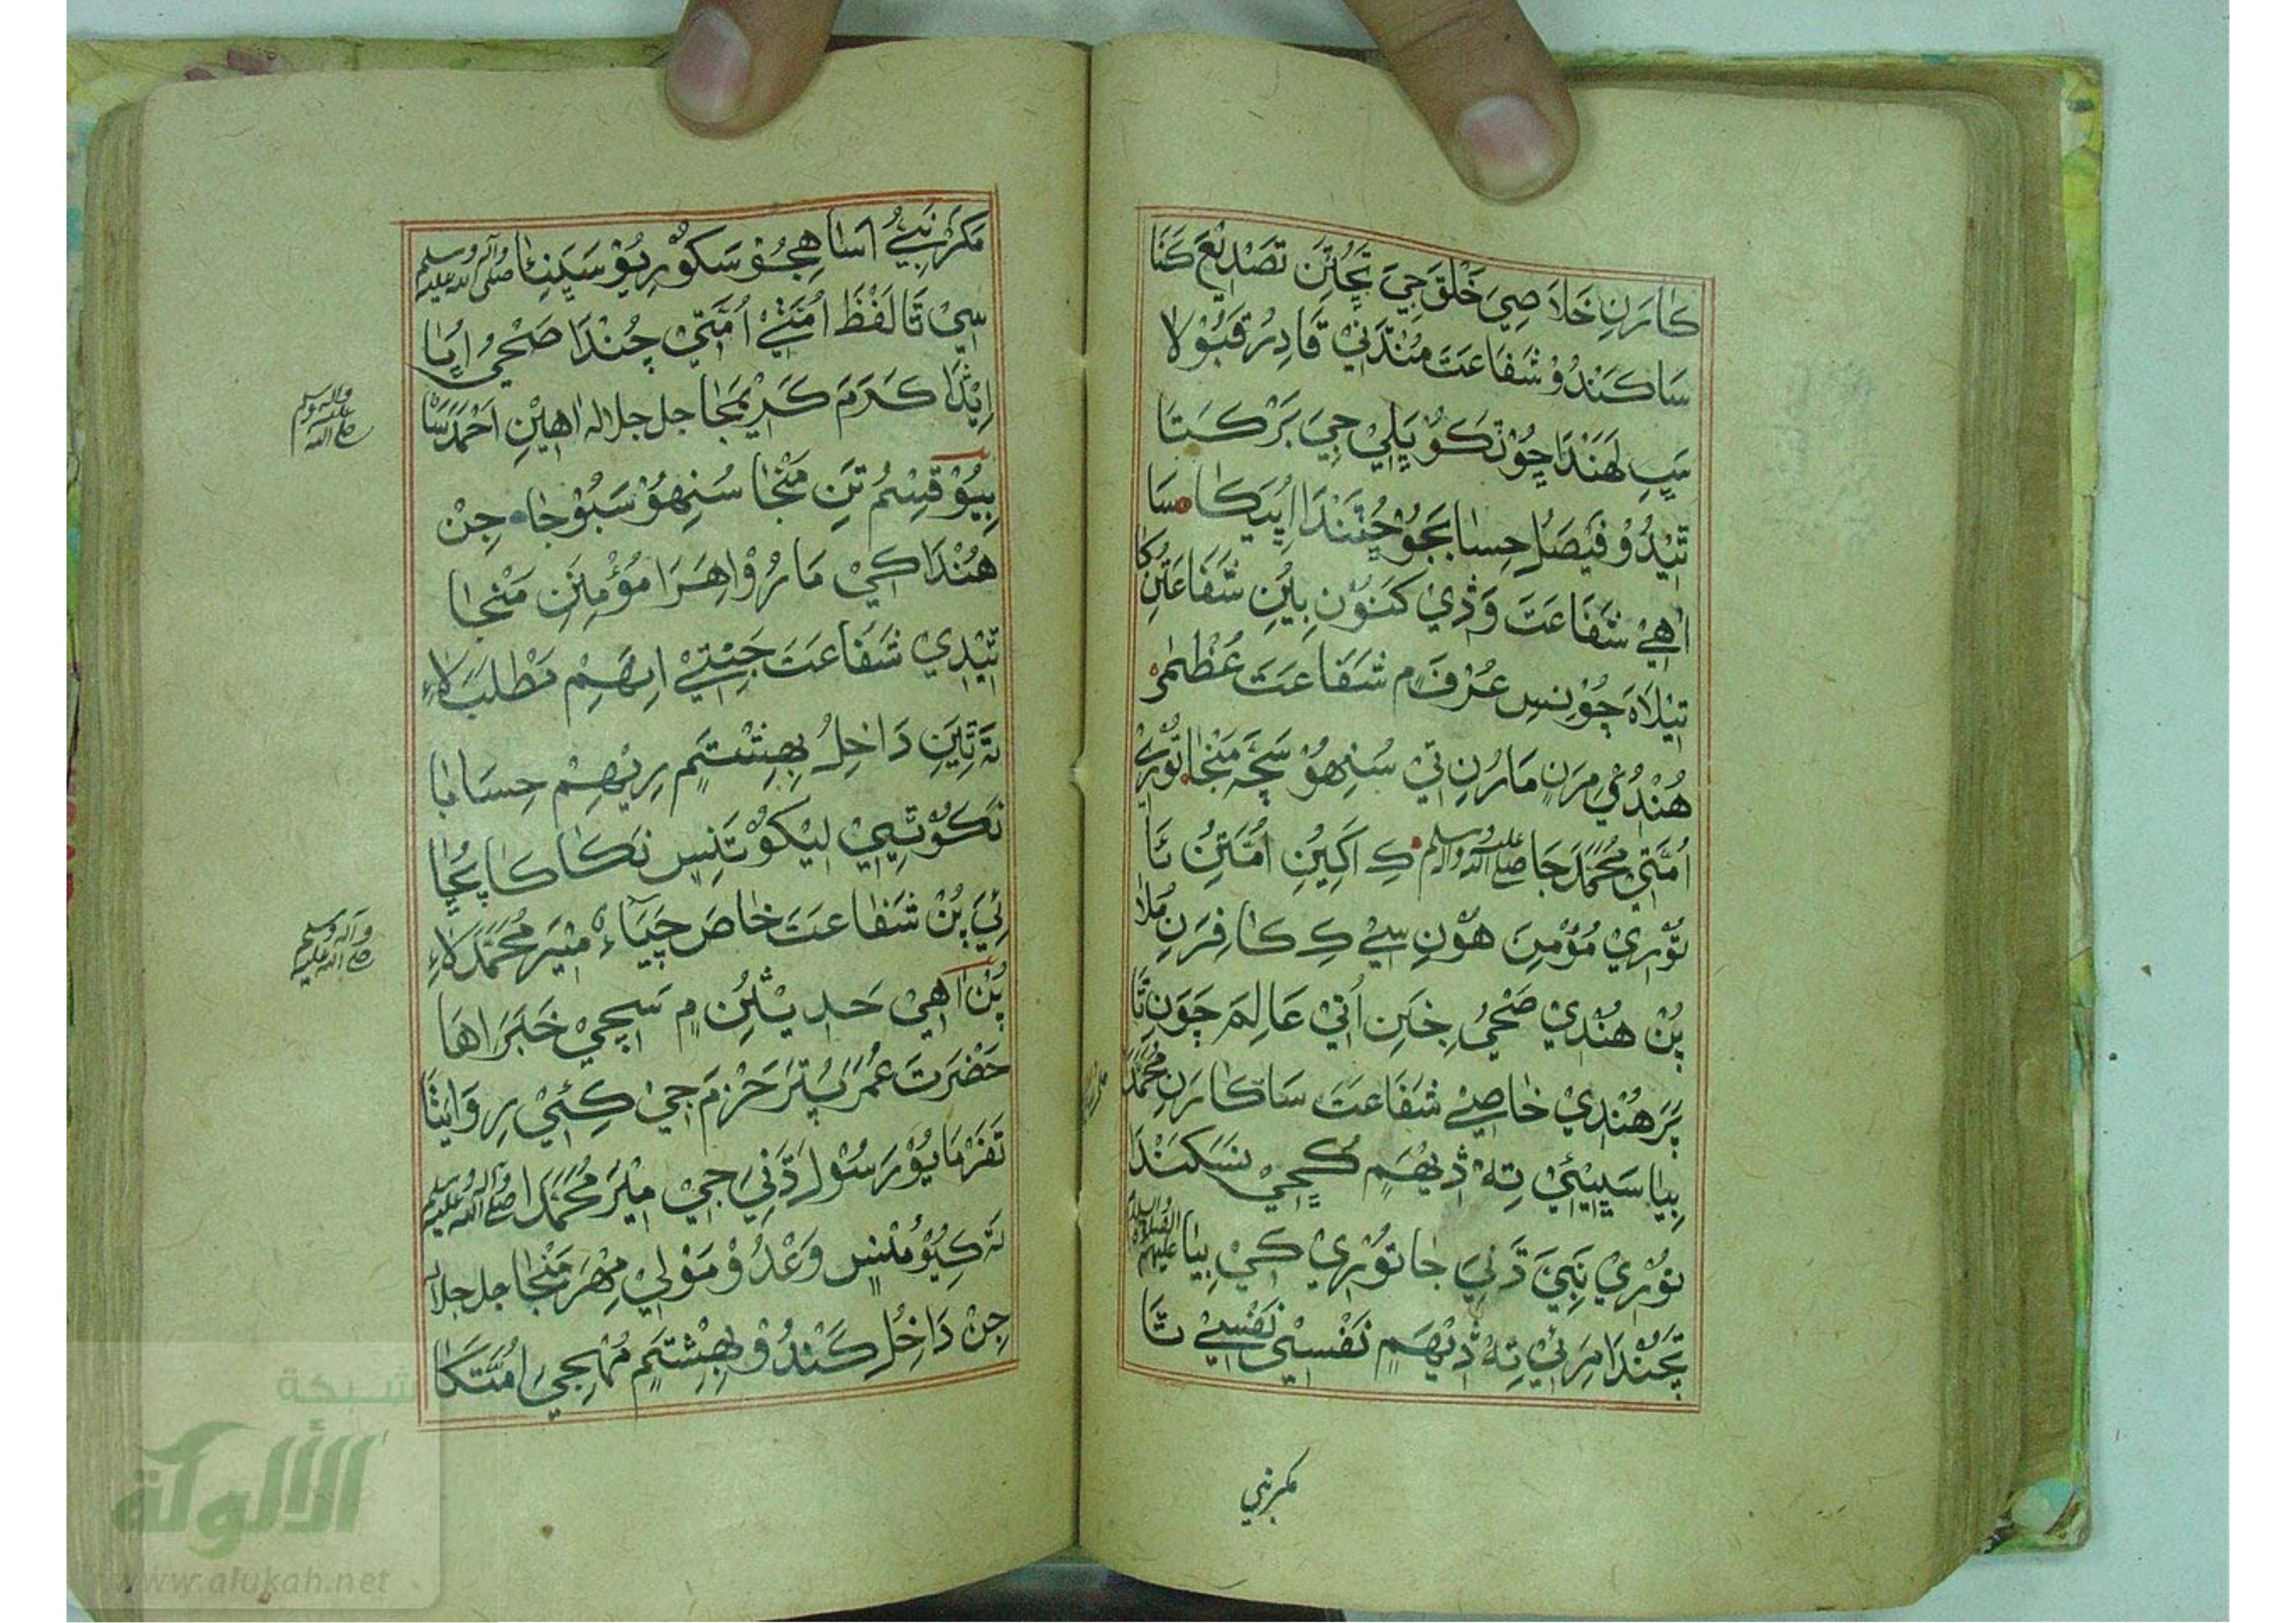 كَارَنِ خَلَاصِيَ خَلْقَ جِيَ تَحُتِن تَصْدِيْعَ كَنَا
سَا كَنْدُوْ شَفَاعَتَ مُنْدَنِيْ قَادِرُ قَبُوْلَا
سَڀِ لَهَنْدَا ڇُوْٽَڪو پَلِيْ جِيَ بَرْكَتَا
ٿِيْنْدُوْ فَيْصَلُ حِسَابَ جُوْ سَا
اٰهِيْ شَفَاعَتَ وَڎِيْ كَنُوْنِ ٻِيُنِ شَفَاعَتُنِ كَا
تِيْلَاهَ چُوْنِسِ عُرْفَ ۾ شَفَاعَتَ عُظْمٰى
هُنْدُيْ مِرَنِ مَارُنِ تي سُنِهُوْ سَچَ مَنْجَا تُوْرِيْ
اُمَّتِيْ مُحَمَّدَ جَا صلى الله عليه واله وسلم كِ اَڳِيُنِ اُمَّتُنِ ئَا
تُوْرِيْ مُؤْمِنَ هُوْنِ سي كِ كَافِرَنِ مُلَا
پُنْ هُنْدِيْ صَحِيُ جِنَنِ اُتيْ عَالِمَ چَوَنِ تَا
پَرَ هُنْدِيْ خَاصِيْ شَفَاعَتَ سَا كَارَنِ مُحَمَّدَ
ٻِيَا سَڀيئيْ تِهْ ڎِيْهَمِ ڪُڇِيْ نَسَكَنْدَا
تُوْرِيْ نَبِيَ ڌَنِيَ جَا تُوْرِيْ كِيْ ٻِيَا عليهم الصلوة والسلام
پَچَنْدَا مِرَئِيْ تِهْ ڎِيْهَمِ نَفْسِيْ نَفْسِيْ تَا
مكر نبي
مَكَرْ نَبِيْ اَسَا هِجُوْ سَكُوْرِيُوْ سَڀَنِئَا صلى الله عليه واله وسلم
سِيْ تَا لَفْظَ اُمَّتِيْ اُمَّتِيْ چُنْدَا صَحِيُ
اِيْنْدَا كَرَمَ كَرِيْمَ جَا جل جلاله اهِيْنِ اَحْمَدَ سَا
واله وسلم عليه صلى الله
ٻِيُوْ قِسْمُ تَنِ مَنْجَا سُنِهُوْ سَبُوْجَا جِنْ
هُنْدَا كِيْ مَارُوْ اِهَرَا مُؤْمِنَنِ مَنْجَا
ٿِيْنْدِيْ شَفَاعَتَ جَنِتيْ اِنَهِمْ مَطْلَبَ لَاءِ
تَہ ٿِيَنِ دَاخِلُ بِهِشْتَمِ رِيْهِمْ حِسَابَا
نَكُوْ ٿِيِيْ لِيْكُوْ تَنِسِ نَكَا كَا پُڇَا
ئِيَ پُنْ شَفَاعَتَ خَاصَ مِيْرَ مُحَمَّدَ لَاءِ
واله وسلم صلى الله عليه
پُنْ اٰهِيْ حَدِيْثُنِ ۾ سَچِيْ خَبَرَ اهَا
حَضْرَتَ عُمَرَ پُتَرَ حَزْمَ جِيْ كِئِيْ رِوَايَتَا
تَہ فَرْمَايُوْ رَسُوْلَ ڌَنِيَ جِيْ مِيْرَ مُحَمَّدَا صلى الله عليه واله وسلم
تَہ كِيُوْ مُنْسِ وَعْدُوْ مَوْلِيْ مِهْرَ مَنْجَا جل جلاله
جِنْ دَاخُلِ كَنْدُوْ بِهِشْتَمِ مُهِجِيَ اُمَّتَكَا
شبكة
الألوكة
www.alukah.net